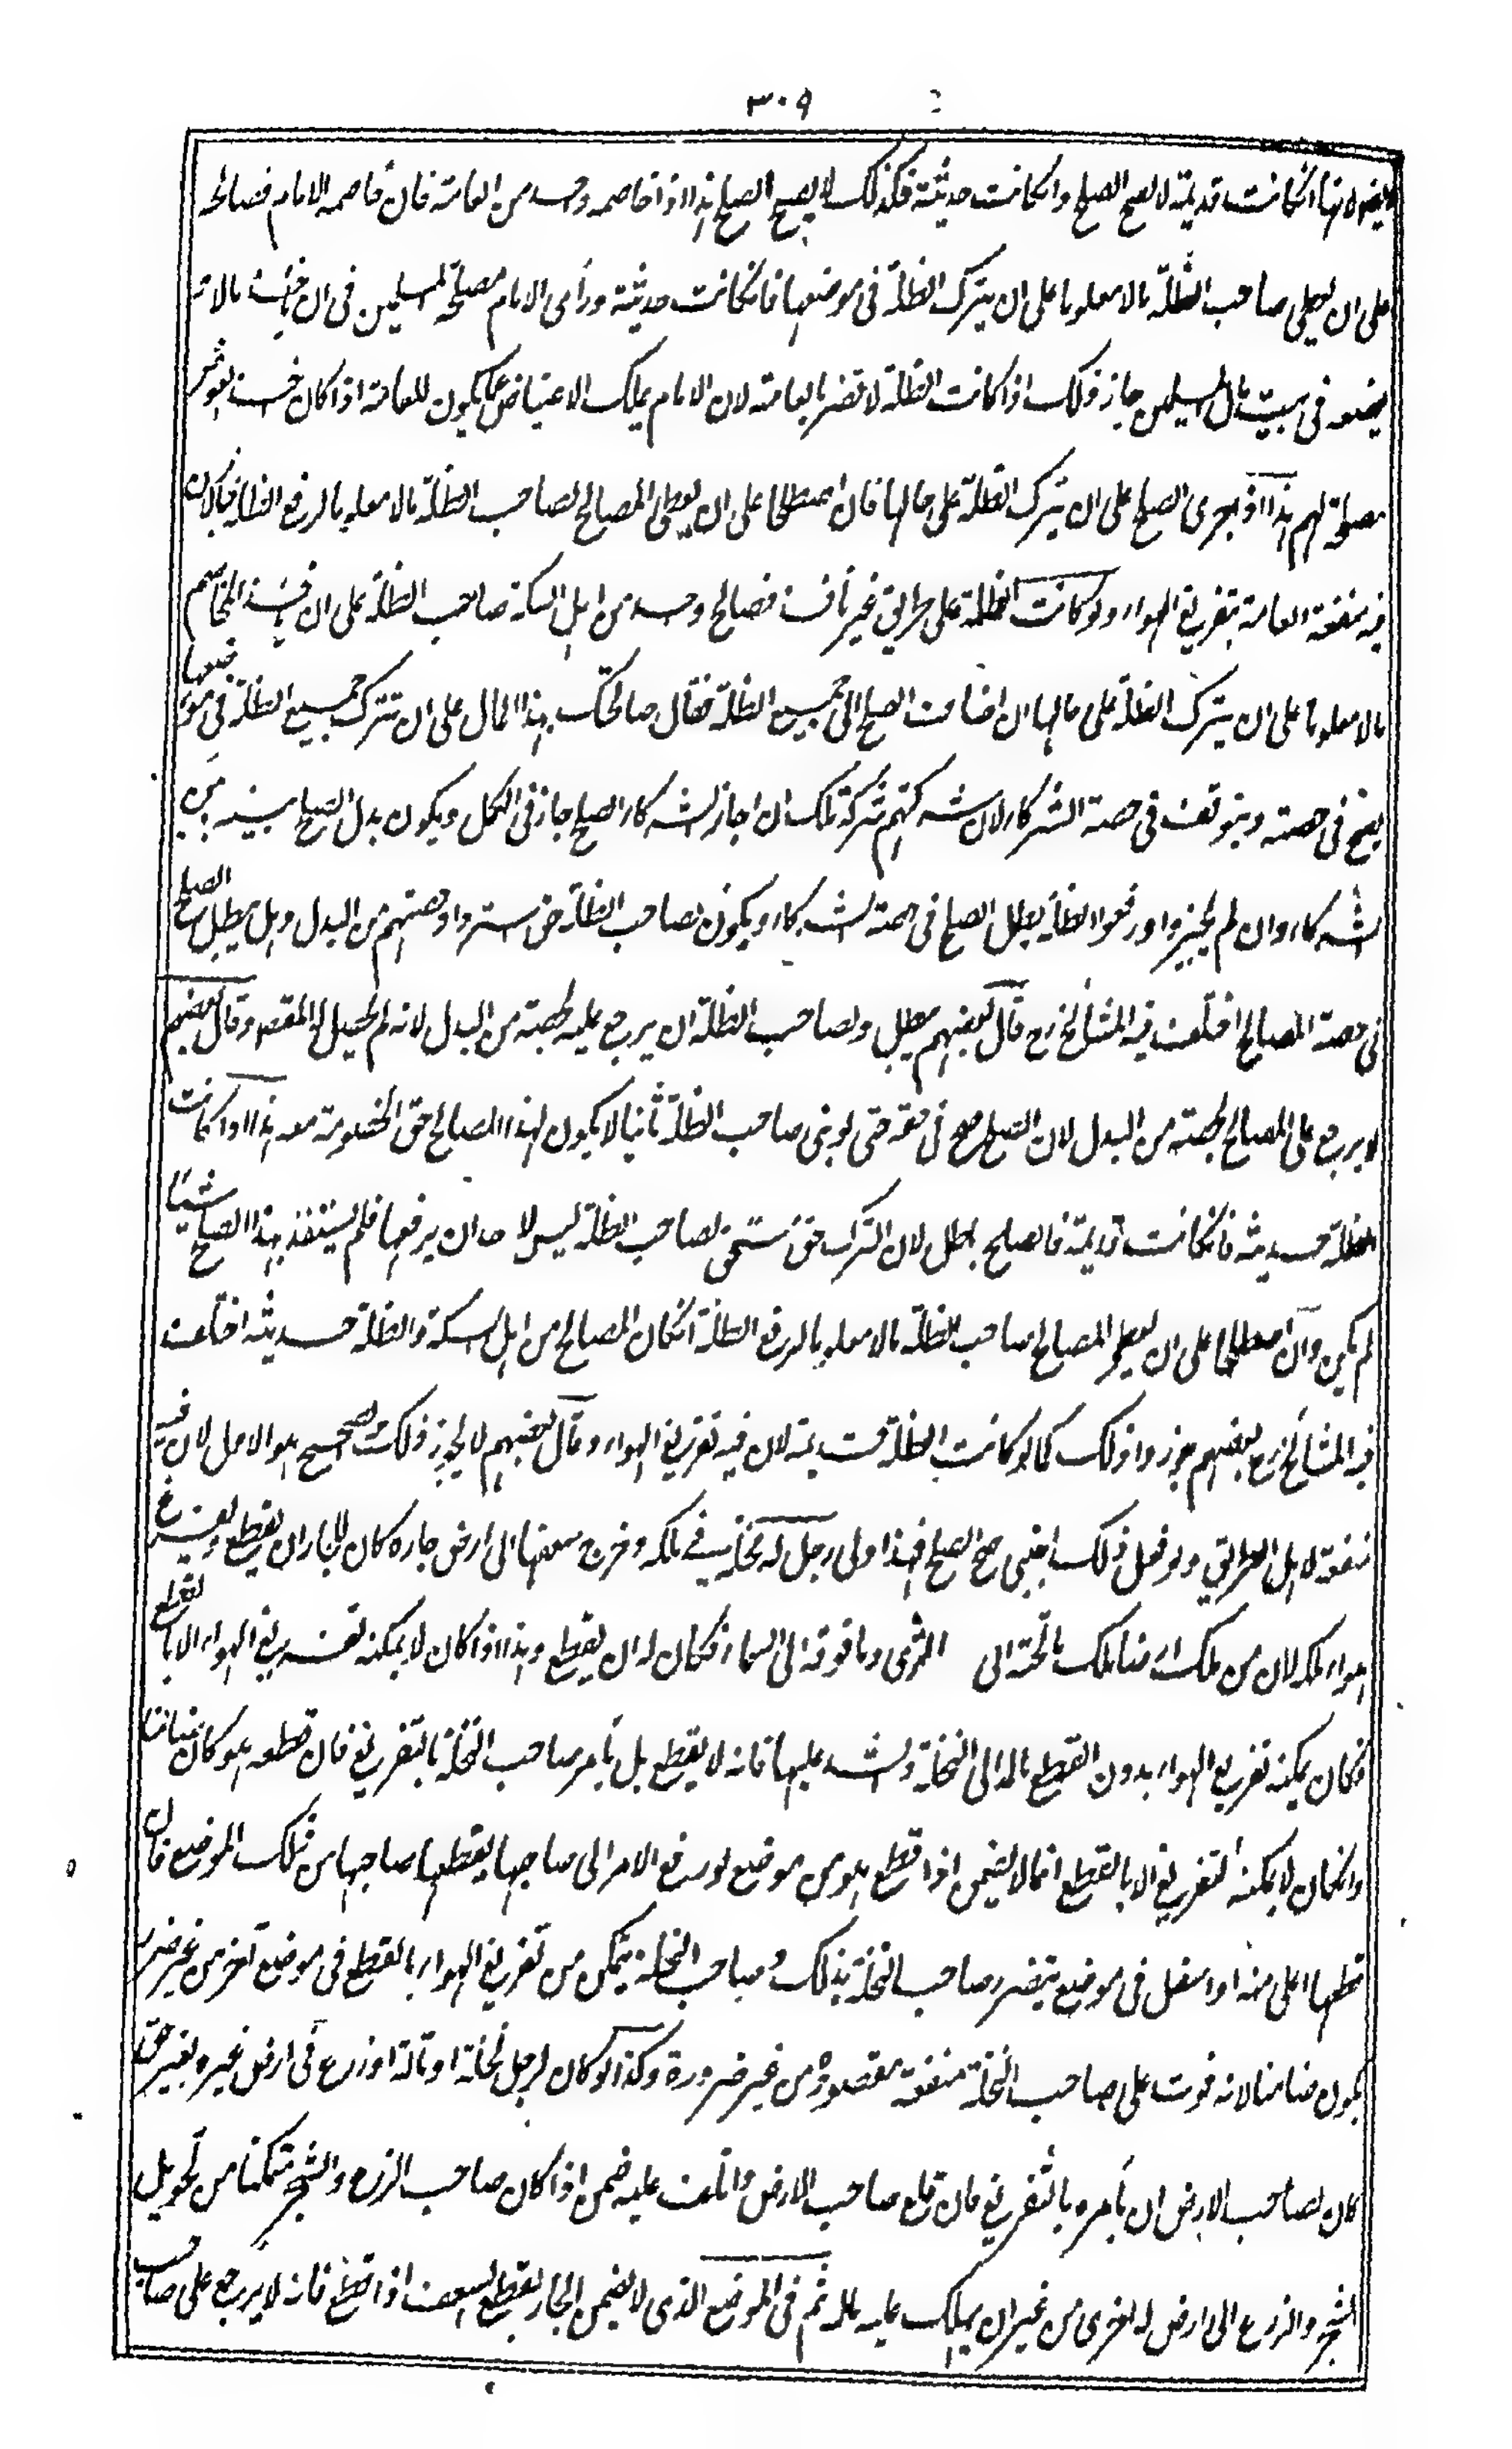 ٣٠٩
لا يضر لانها ان كانت قديمة لا يصح الصلح وان كانت حديثة فكذلك لا يصح الصلح هذا اذا خاصمه واحد من العامة فان خاصمه الامام فصالحه
على ان يعطى صاحب الظلة مالا معلوما على ان يترك الظلة فى موضعها فان كانت حديثة ورأى الامام مصلحة المسلمين فى ان ياخذ مالا
فيضعه فى بيت مال المسلمين جاز ذلك اذا كانت الظلة لا تضر بالعامة لان الامام يملك الاعتياض عما يكون للعامة اذا كان
مصلحة لهم هذا اذا جرى الصلح على ان يترك الظلة على حالها فان اصطلحا على ان يعطى المصالح لصاحب الظلة مالا معلوما لرفع الظلة جاز لان
فيه منفعة العامة بتفريغ الهواء ولو كانت الظلة على طريق غير نافذ فصالح واحد من اهل السكة صاحب الظلة على ان ياخذ المخاصم
مالا معلوما على ان يترك الظلة على حالها ان اضافت الصلح الى جميع الظلة فقال صالحتك بهذا المال على ان تترك جميع الظلة فى موضعها
يصح فى حصته ويتوقف فى حصة الشركاء لان شركتهم شركة ملك ان اجاز الشركاء الصلح جاز فى الكل ويكون بدل الصلح بينه وبين
الشركاء وان لم يجيزوا ورفعوا الظلة يبطل الصلح فى حصة الشركاء ويكون لصاحب الظلة حق استرداد حصتهم من البدل وهل يبطل الصلح
فى حصة المصالح اختلفت فيه المشائخ رح قال بعضهم يبطل ولصاحب الظلة ان يرجع عليه بحصته من البدل لانه لم يحصل له المقصود وقال بعضهم
لا يرجع على المصالح بحصته من البدل لان الصلح صح فى حقه حتى لو بنى صاحب الظلة ثانيا لا يكون لهذا المصالح حق الخصومة معه هذا اذا كانت
الظلة حديثة فان كانت قديمة فالصلح باطل لان الترك حق مستحق لصاحب الظلة ليس لاحد ان يرفعها فلم يستفد بهذا الصلح شيئا
لم يكن وان اصطلحا على ان يعطى المصالح صاحب الظلة مالا معلوما لرفع الظلة ان كان المصالح من اهل السكة والظلة حديثة اختلفت
فيه المشائخ رح بعضهم جوزوا ذلك كما لو كانت الظلة قديمة لان فيه تفريغ الهواء وقال بعضهم لا يجوز ذلك والصحيح هو الاول لان فيه
منفعة لاهل الطريق ولو فعل ذلك اجنبى صح الصلح فهذا اولى رجل له نخلة فى ملكه وخرج سعفها الى ارض جاره كان للجار ان يقطع ويفرغ
هواء ملكه لان من ملك ارضا ملك ما تحته الى الثرى وما فوقه الى السماء فكان له ان يقطع وهذا اذا كان لا يمكنه تفريغ الهواء الا بالقطع
فكان يمكنه تفريغ الهواء بدون القطع بالمد الى النخلة والشد عليها فانه لا يقطع بل يأمر صاحب النخلة بالتفريغ فان قطعه هو كان ضامنا
وان كان لا يمكنه التفريغ الا بالقطع انما لا يضمن اذا قطع هو من موضع لو رفع الامر الى صاحبها يقطعها صاحبها من ذلك الموضع فان
قطعها اعلى منه او اسفل فى موضع يتضرر صاحب النخلة بذلك وصاحب النخلة يتمكن من تفريغ الهواء بالقطع فى موضع آخر من غير ضرر
يكون ضامنا لانه فوت على صاحب النخلة منفعة مقصودة من غير ضرورة وكذا لو كان لرجل نخلة او تالة او زرع فى ارض غيره بغير حق
كان لصاحب الارض ان يأمره بالتفريغ فان قلع صاحب الارض واتلف عليه ضمن اذا كان صاحب الزرع والشجر متمكنا من تحويل
الشجر والزرع الى ارض له اخرى من غير ان يهلك عليه ماله ثم فى الموضع الذى لا يضمن الجار بقطع السعف اذا قطع فانه لا يرجع على صاحب